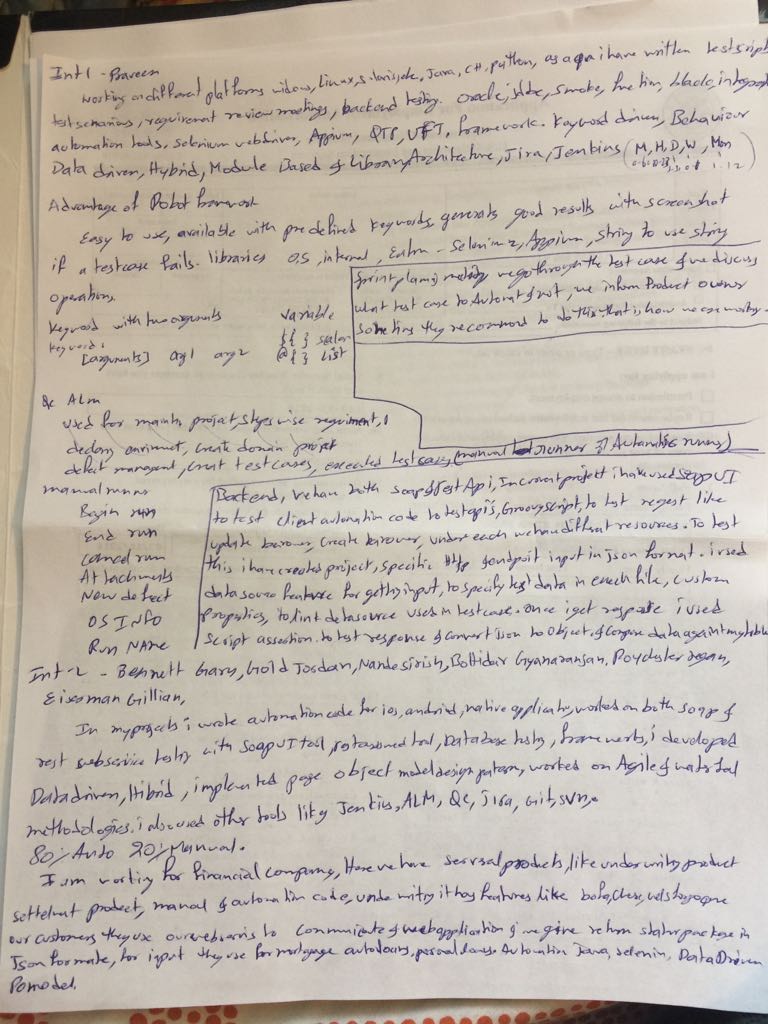 Int1 - Praveen
working on different platforms widows, Linux, solaris, etc, Java, C#, python, as a qa i have written testscript
test scenarios, requirement review meetings, backend testing. Oracle, jdbc, smoke, function, black, integrat
automation tools, selenium webdriver, Appium, QTP, UFT, framework. Keyword driven, Behaviour
Data driven, Hybrid, Module Based & Library Architecture, Jira, Jenkins (M, H, D, W, Mon
Advantage of Robot framework
Easy to use, available with predefined keywords, generats good results with screenshot
if a testcase fails. libraries OS, internal, Selenium2, Appium, string to use string
operations.
Keyword with two arguments variable
Keyword: ${ } scalar
[arguments] arg1 arg2 @{ } List
Sprint planing meeting we go through the test case & we discuss
what test case to Automat & not, we inform Product owner
some times they recommend to do this that is how we are working.
Qc ALM
used for project, requiment,
create domain project
defect managent, creat test cases, executed test cases (manual runner & Automatic runner)
manual runns
Begin run
End run
cancel run
Attachments
New defect
OS INFO
Run NAME
Backend, we have both soap & Rest Api, In current project i have used soap UI
to test client automation code to test api's, Groovy script, to test reqest like
update borrower, create borrower, under each we have different resources. To test
this i have created project, specific http & endpoint input in Json format. i used
data source feature for getting input, to specify test data in excel file, custom
properties, to link datasource used in testcase. once i get response i used
script assertion to test response & convert Json to Object, & compare data against my table
Int-2 - Bennett Gary, Gold Jordan, Nande sirish, Gyanaranjan,
Eiseman Gillian,
In my projects i wrote automation code for ios, android, native applicatio, worked on both soap &
rest webservice testing with SoapUI tool, tool, Database testing, frameworks, i developed
Datadriven, Hibrid, implemented page object model design patarn, worked on Agile & waterfal
methodologies. i also used other tools like Jenkins, ALM, QC, jira, Git, SVN.
80% Auto 20% Manual.
I am working for financial company, Here we have serveral products, like underwriting product
settelment product, manual & automation code, it has features like
our customers they use our webservis to communicate & web application & we give return in
Json formate, for input they use for mortgage auto loans, personal loans Automation Java, selenin, Data Driven
Pomodel.